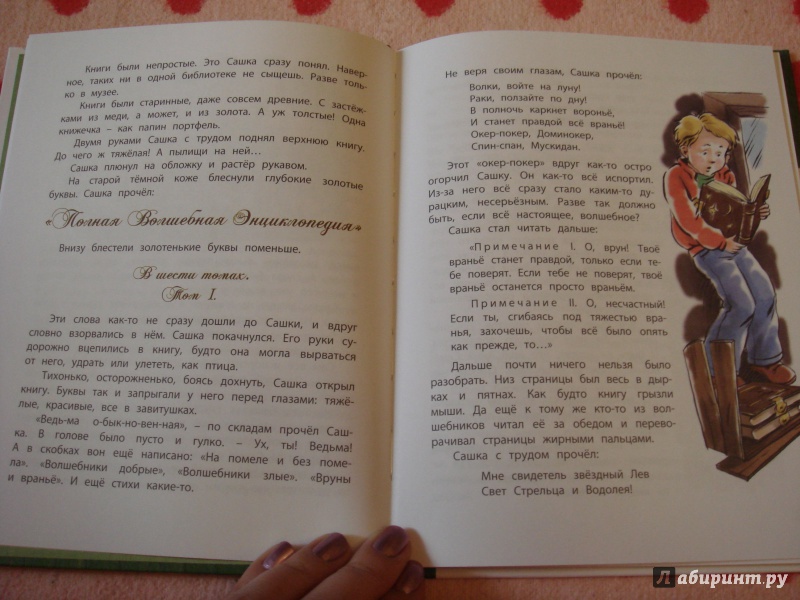 Книги были непростые. Это Сашка сразу понял. Навер-
ное, таких ни в одной библиотеке не сыщешь. Разве толь-
ко в музее.
Книги были старинные, даже совсем древние. С застёж-
ками из меди, а может, и из золота. А уж толстые! Одна
книжечка – как папин портфель.
Двумя руками Сашка с трудом поднял верхнюю книгу.
До чего ж тяжёлая! А пылищи на ней…
Сашка плюнул на обложку и растёр рукавом.
На старой тёмной коже блеснули глубокие золотые
буквы. Сашка прочёл:
«Полная Волшебная Энциклопедия»
Внизу блестели золотенькие буквы поменьше.
В шести томах.
Том I.
Эти слова как-то не сразу дошли до Сашки, и вдруг
словно взорвались в нём. Сашка покачнулся. Его руки су-
дорожно вцепились в книгу, будто она могла вырваться
от него, удрать или улететь, как птица.
Тихонько, осторожненько, боясь дохнуть, Сашка открыл
книгу. Буквы так и запрыгали у него перед глазами: тяжё-
лые, красивые, все в завитушках.
«Ведь-ма о-бык-но-вен-ная», – по складам прочёл Саш-
ка. В голове было пусто и гулко. – Ух, ты! Ведьма!
А в скобках вон ещё написано: «На помеле и без поме-
ла». «Волшебники добрые», «Волшебники злые». «Вруны
и враньё». И ещё стихи какие-то.
Не веря своим глазам, Сашка прочёл:
Волки, войте на луну!
Раки, ползайте по дну!
В полночь каркнет вороньё,
И станет правдой всё враньё!
Окер-покер, Доминокер,
Спин-спан, Мускидан.
Этот «окер-покер» вдруг как-то остро
огорчил Сашку. Он как-то всё испортил.
Из-за него всё сразу стало каким-то ду-
рацким, несерьёзным. Разве так должно
быть, если всё настоящее, волшебное?
Сашка стал читать дальше:
«Примечание I. О, врун! Твоё
враньё станет правдой, только если те-
бе поверят. Если тебе не поверят, твоё
враньё останется просто враньём.
Примечание II. О, несчастный!
Если ты, сгибаясь под тяжестью вра-
нья, захочешь, чтобы всё было опять
как прежде, то…»
Дальше почти ничего нельзя было
разобрать. Низ страницы был весь в дыр-
ках и пятнах. Как будто книгу грызли
мыши. Да ещё к тому же кто-то из вол-
шебников читал её за обедом и перево-
рачивал страницы жирными пальцами.
Сашка с трудом прочёл:
Мне свидетель звёздный Лев
Свет Стрельца и Водолея!
Лабиринт.ру